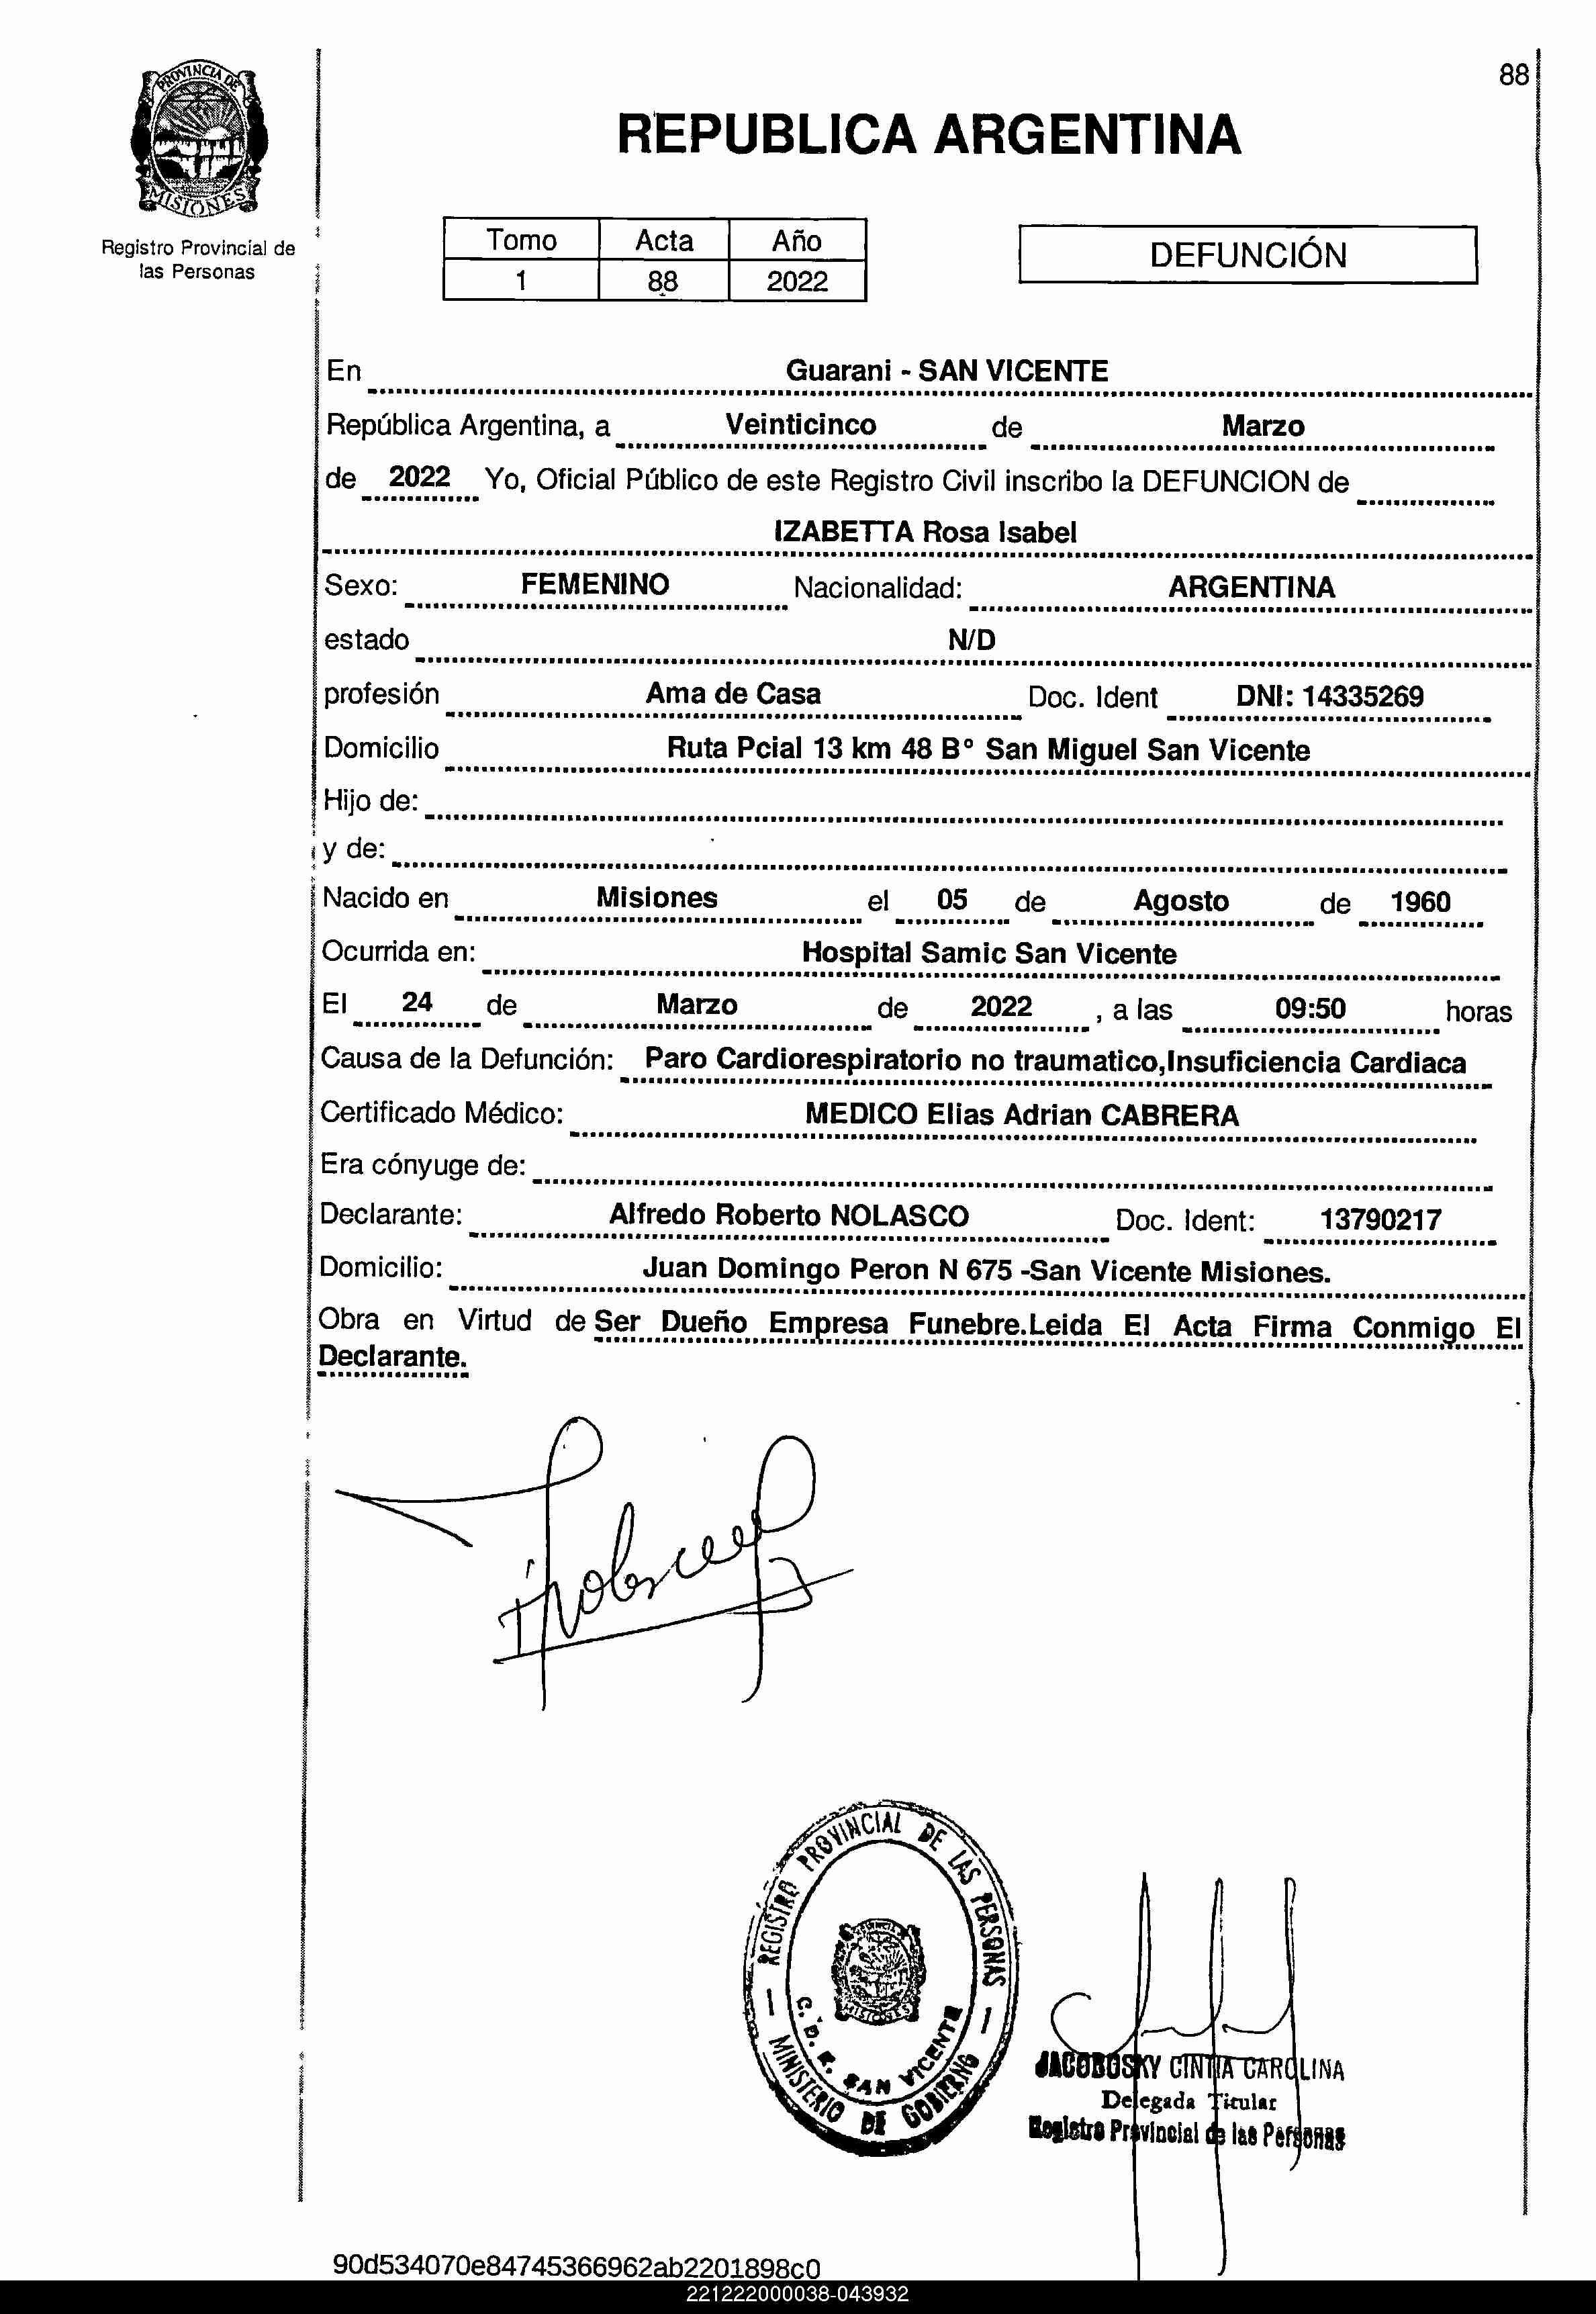 88
PROVINCIA DE
MISIONES
Registro Provincial de
las Personas
REPUBLICA ARGENTINA
Tomo Acta Año
1 88 2022
DEFUNCIÓN
En Guarani - SAN VICENTE
República Argentina, a Veinticinco de Marzo
de 2022 Yo, Oficial Público de este Registro Civil inscribo la DEFUNCION de
IZABETTA Rosa Isabel
Sexo: FEMENINO Nacionalidad: ARGENTINA
estado N/D
profesión Ama de Casa Doc. Ident DNI: 14335269
Domicilio Ruta Pcial 13 km 48 B° San Miguel San Vicente
Hijo de:
y de:
Nacido en Misiones el 05 de Agosto de 1960
Ocurrida en: Hospital Samic San Vicente
El 24 de Marzo de 2022 , a las 09:50 horas
Causa de la Defunción: Paro Cardiorespiratorio no traumatico,Insuficiencia Cardiaca
Certificado Médico: MEDICO Elias Adrian CABRERA
Era cónyuge de:
Declarante: Alfredo Roberto NOLASCO Doc. Ident: 13790217
Domicilio: Juan Domingo Peron N 675 -San Vicente Misiones.
Obra en Virtud de Ser Dueño Empresa Funebre.Leida El Acta Firma Conmigo El
Declarante.
REGISTRO PROVINCIAL DE LAS PERSONAS
MISIONES
C. D. R. SAN VICENTE
MINISTERIO DE GOBIERNO
JACOBOSKY CINTIA CAROLINA
Delegada Titular
Registro Provincial de las Personas
90d534070e84745366962ab2201898c0
221222000038-043932